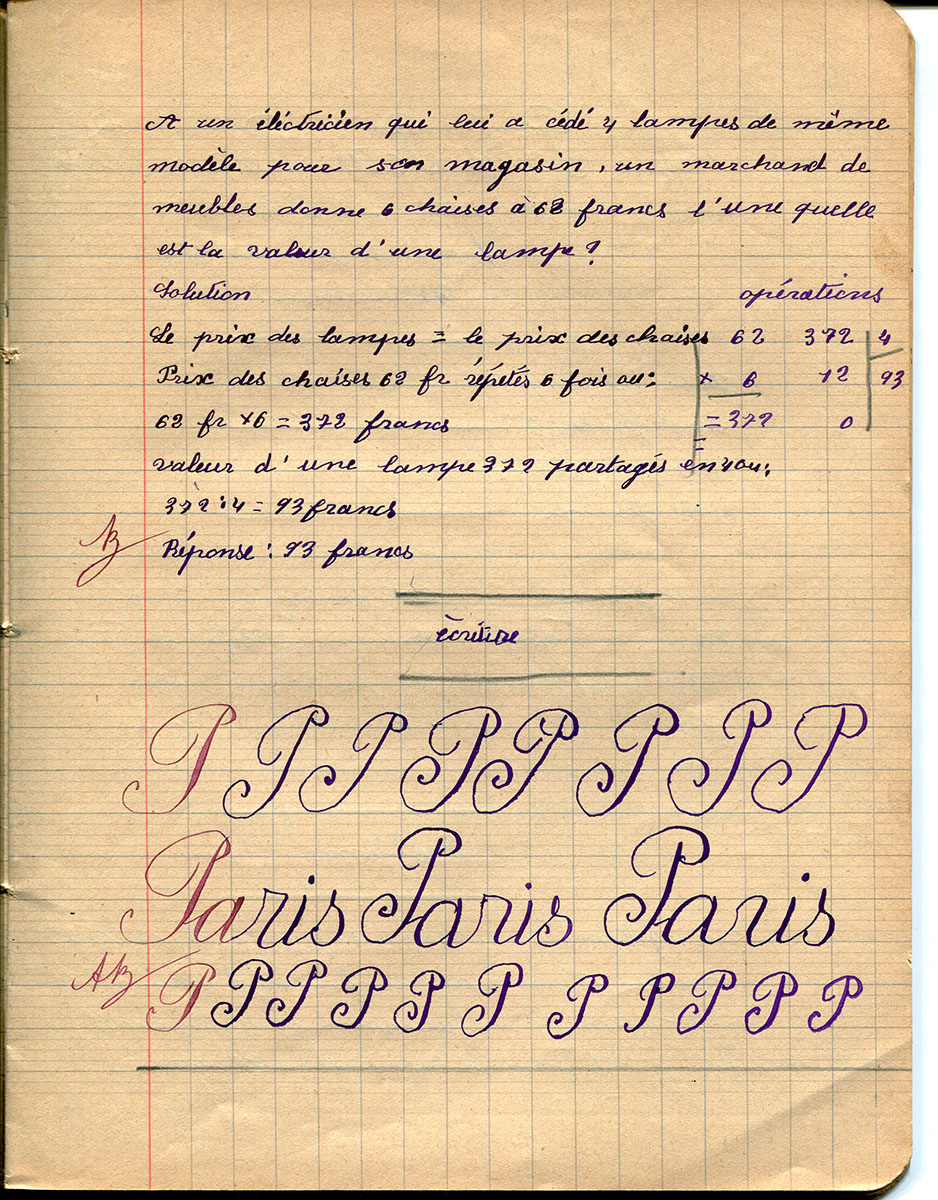 A un éléctricien qui lui a cédé 4 lampes de même
modèle pour son magasin, un marchand de
meubles donne 6 chaises à 62 francs l'une quelle
est la valeur d'une lampe?
Solution opérations
Le prix des lampes = le prix des chaises 62 372 4
Prix des chaises 62 fr répetés 6 fois ou: × 6 12 93
62 fr × 6 = 372 francs = 372 0
valeur d'une lampe 372 partagés en 4 ou:
372 : 4 = 93 francs
B Réponse : 93 francs
ècriture
P P P P P P P P
Paris Paris Paris
AB P P P P P P P P P P P